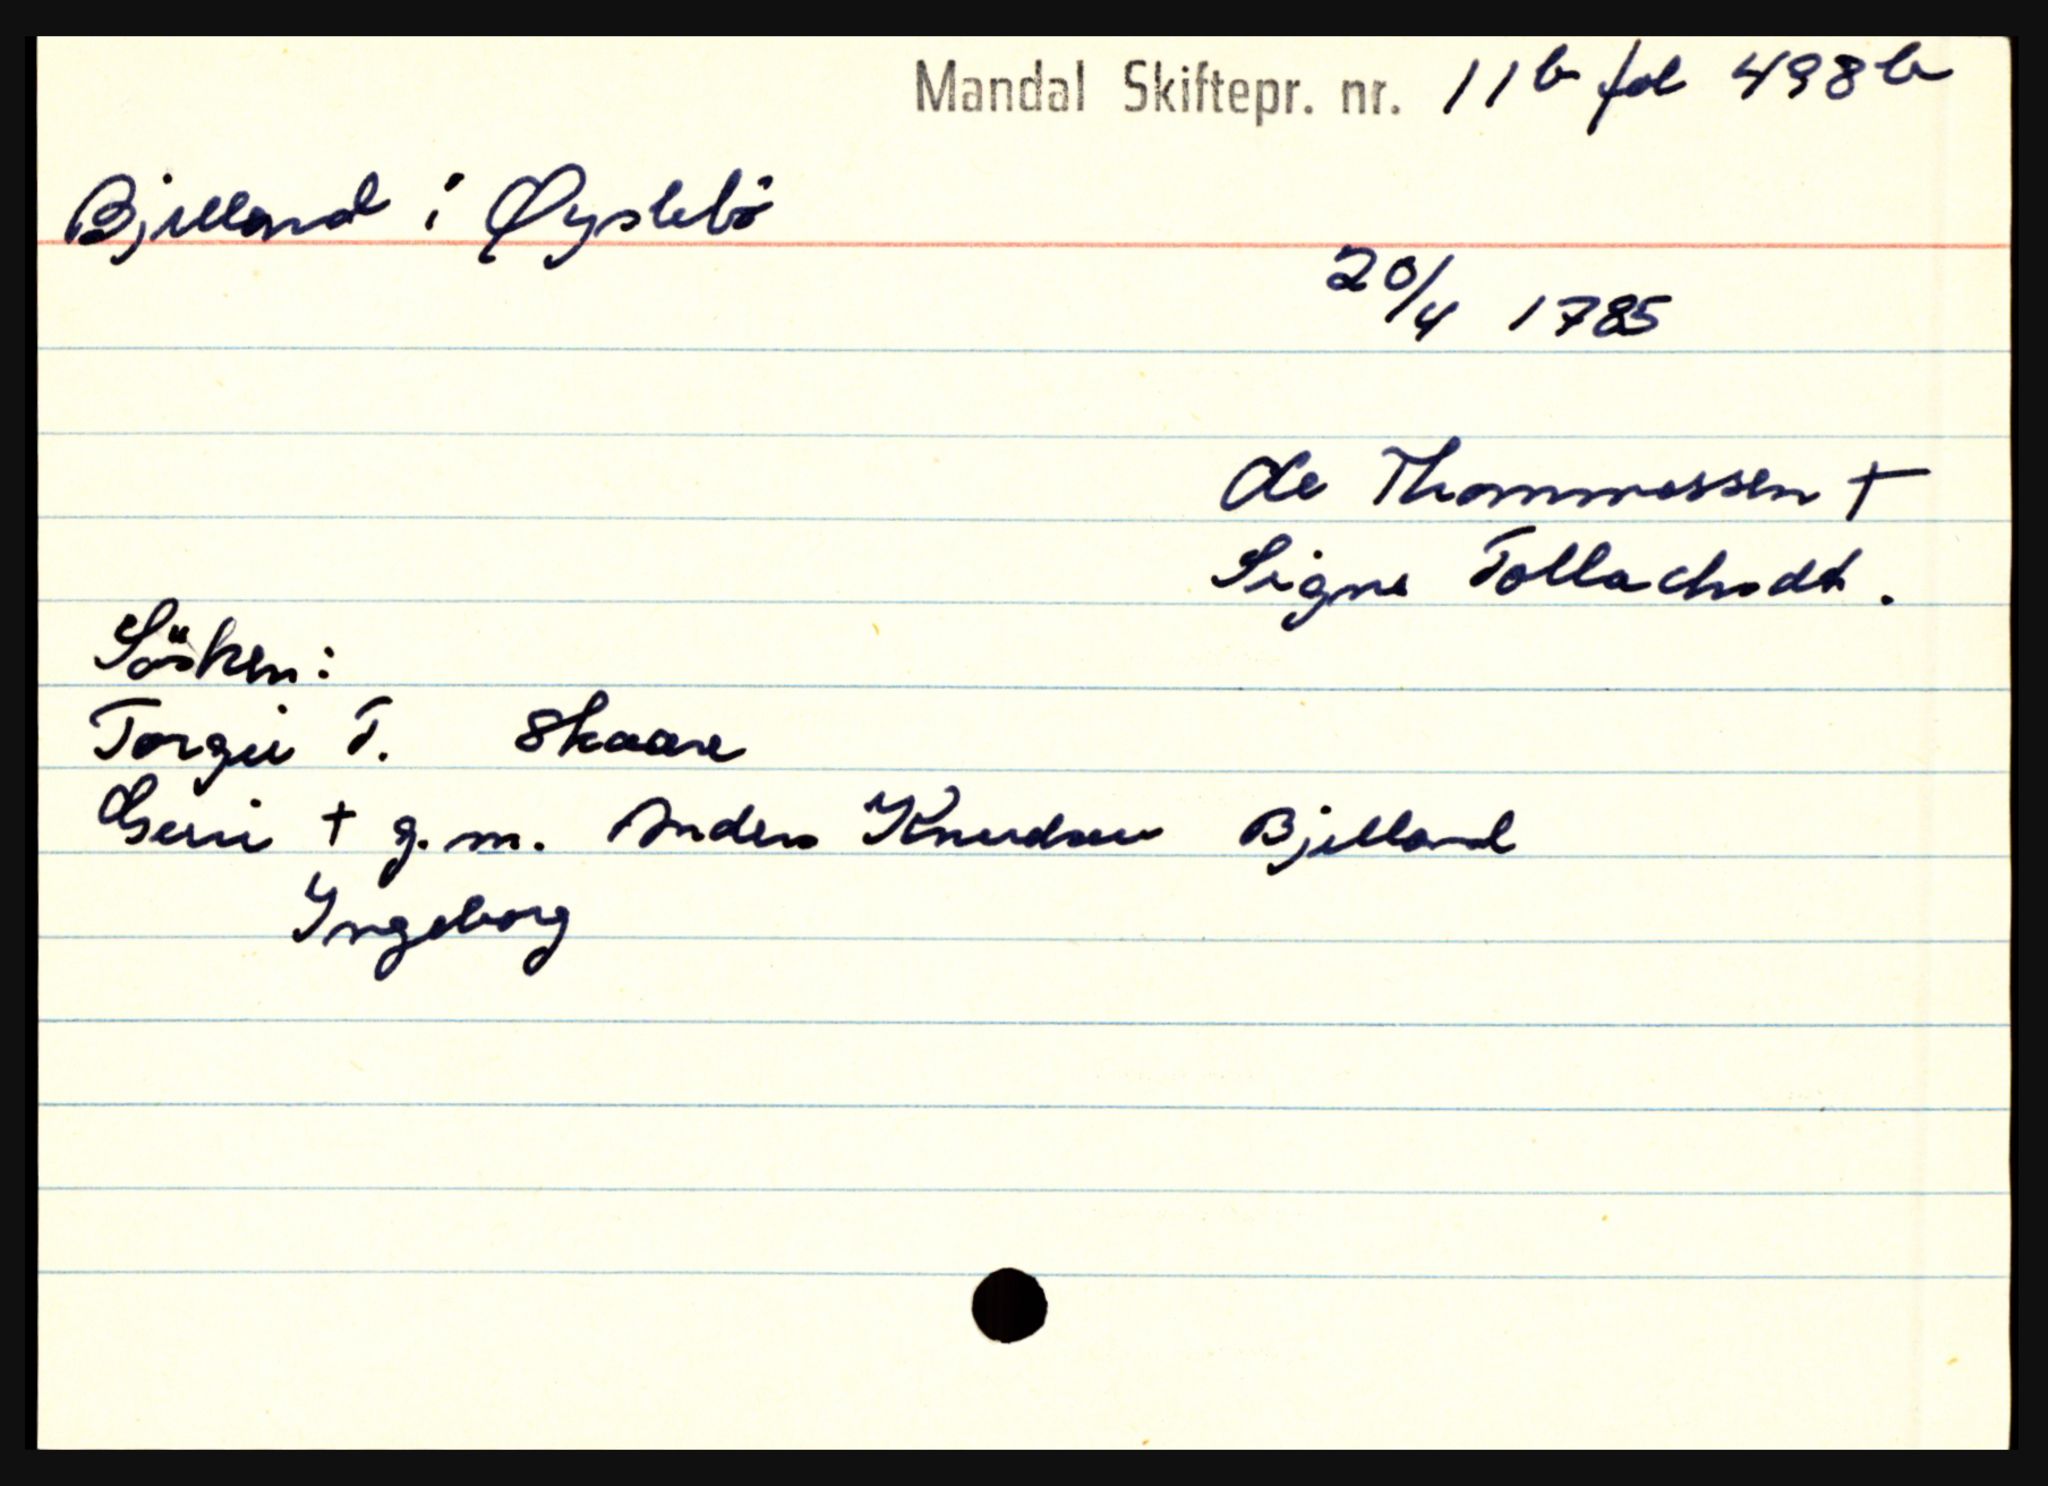 Mandal Skiftepr. nr. 11b fol 498b
Bjelland i Øyslebö
20/4 1785
Ole Thommessen †
Signe Tollachsdt.
Sösken:
Torgei T. Skaare
Gerri † g.m. Anders Knudsen Bjelland
Ingeborg